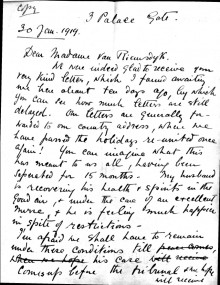 Copy
3 Palace Gate.
30 Jan. 1919.
Dear Madame Van Riemsdyk.
We were indeed glad to receive your
very kind letter, which I found awaiting
me here about ten days ago, by which
you can see how much letters are still
delayed. Our letters are generally for-
warded to our country address, where we
have passed the holidays re-united once
again! You can imagine what this
has meant to us all, having been
separated for 15 months. My husband
is recovering his health & spirits in the
good air & under the care of an excellent
nurse, & he is feeling much happier,
in spite of restrictions.
I'm afraid we shall have to remain
under these conditions till
when we hope his case will receive
comes up before the tribunal we hope
will receive